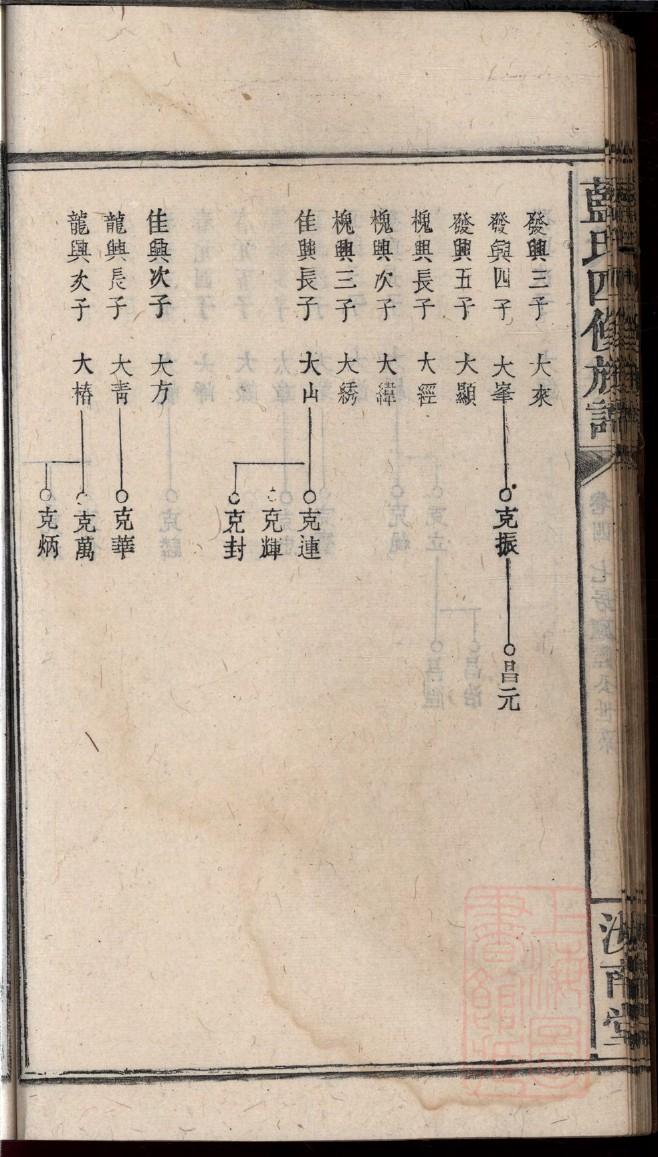 藍氏四修族譜
卷四
汝南堂
發興三子 大來
發興四子 大峯 克振 昌元
發興五子 大顯
槐興長子 大經
槐興次子 大緯
槐興三子 大綉
佳興長子 大山 克連
克輝
克封
佳興次子 大方
龍興長子 大青 克華
龍興次子 大椿 克萬
克炳
上海圖書館藏